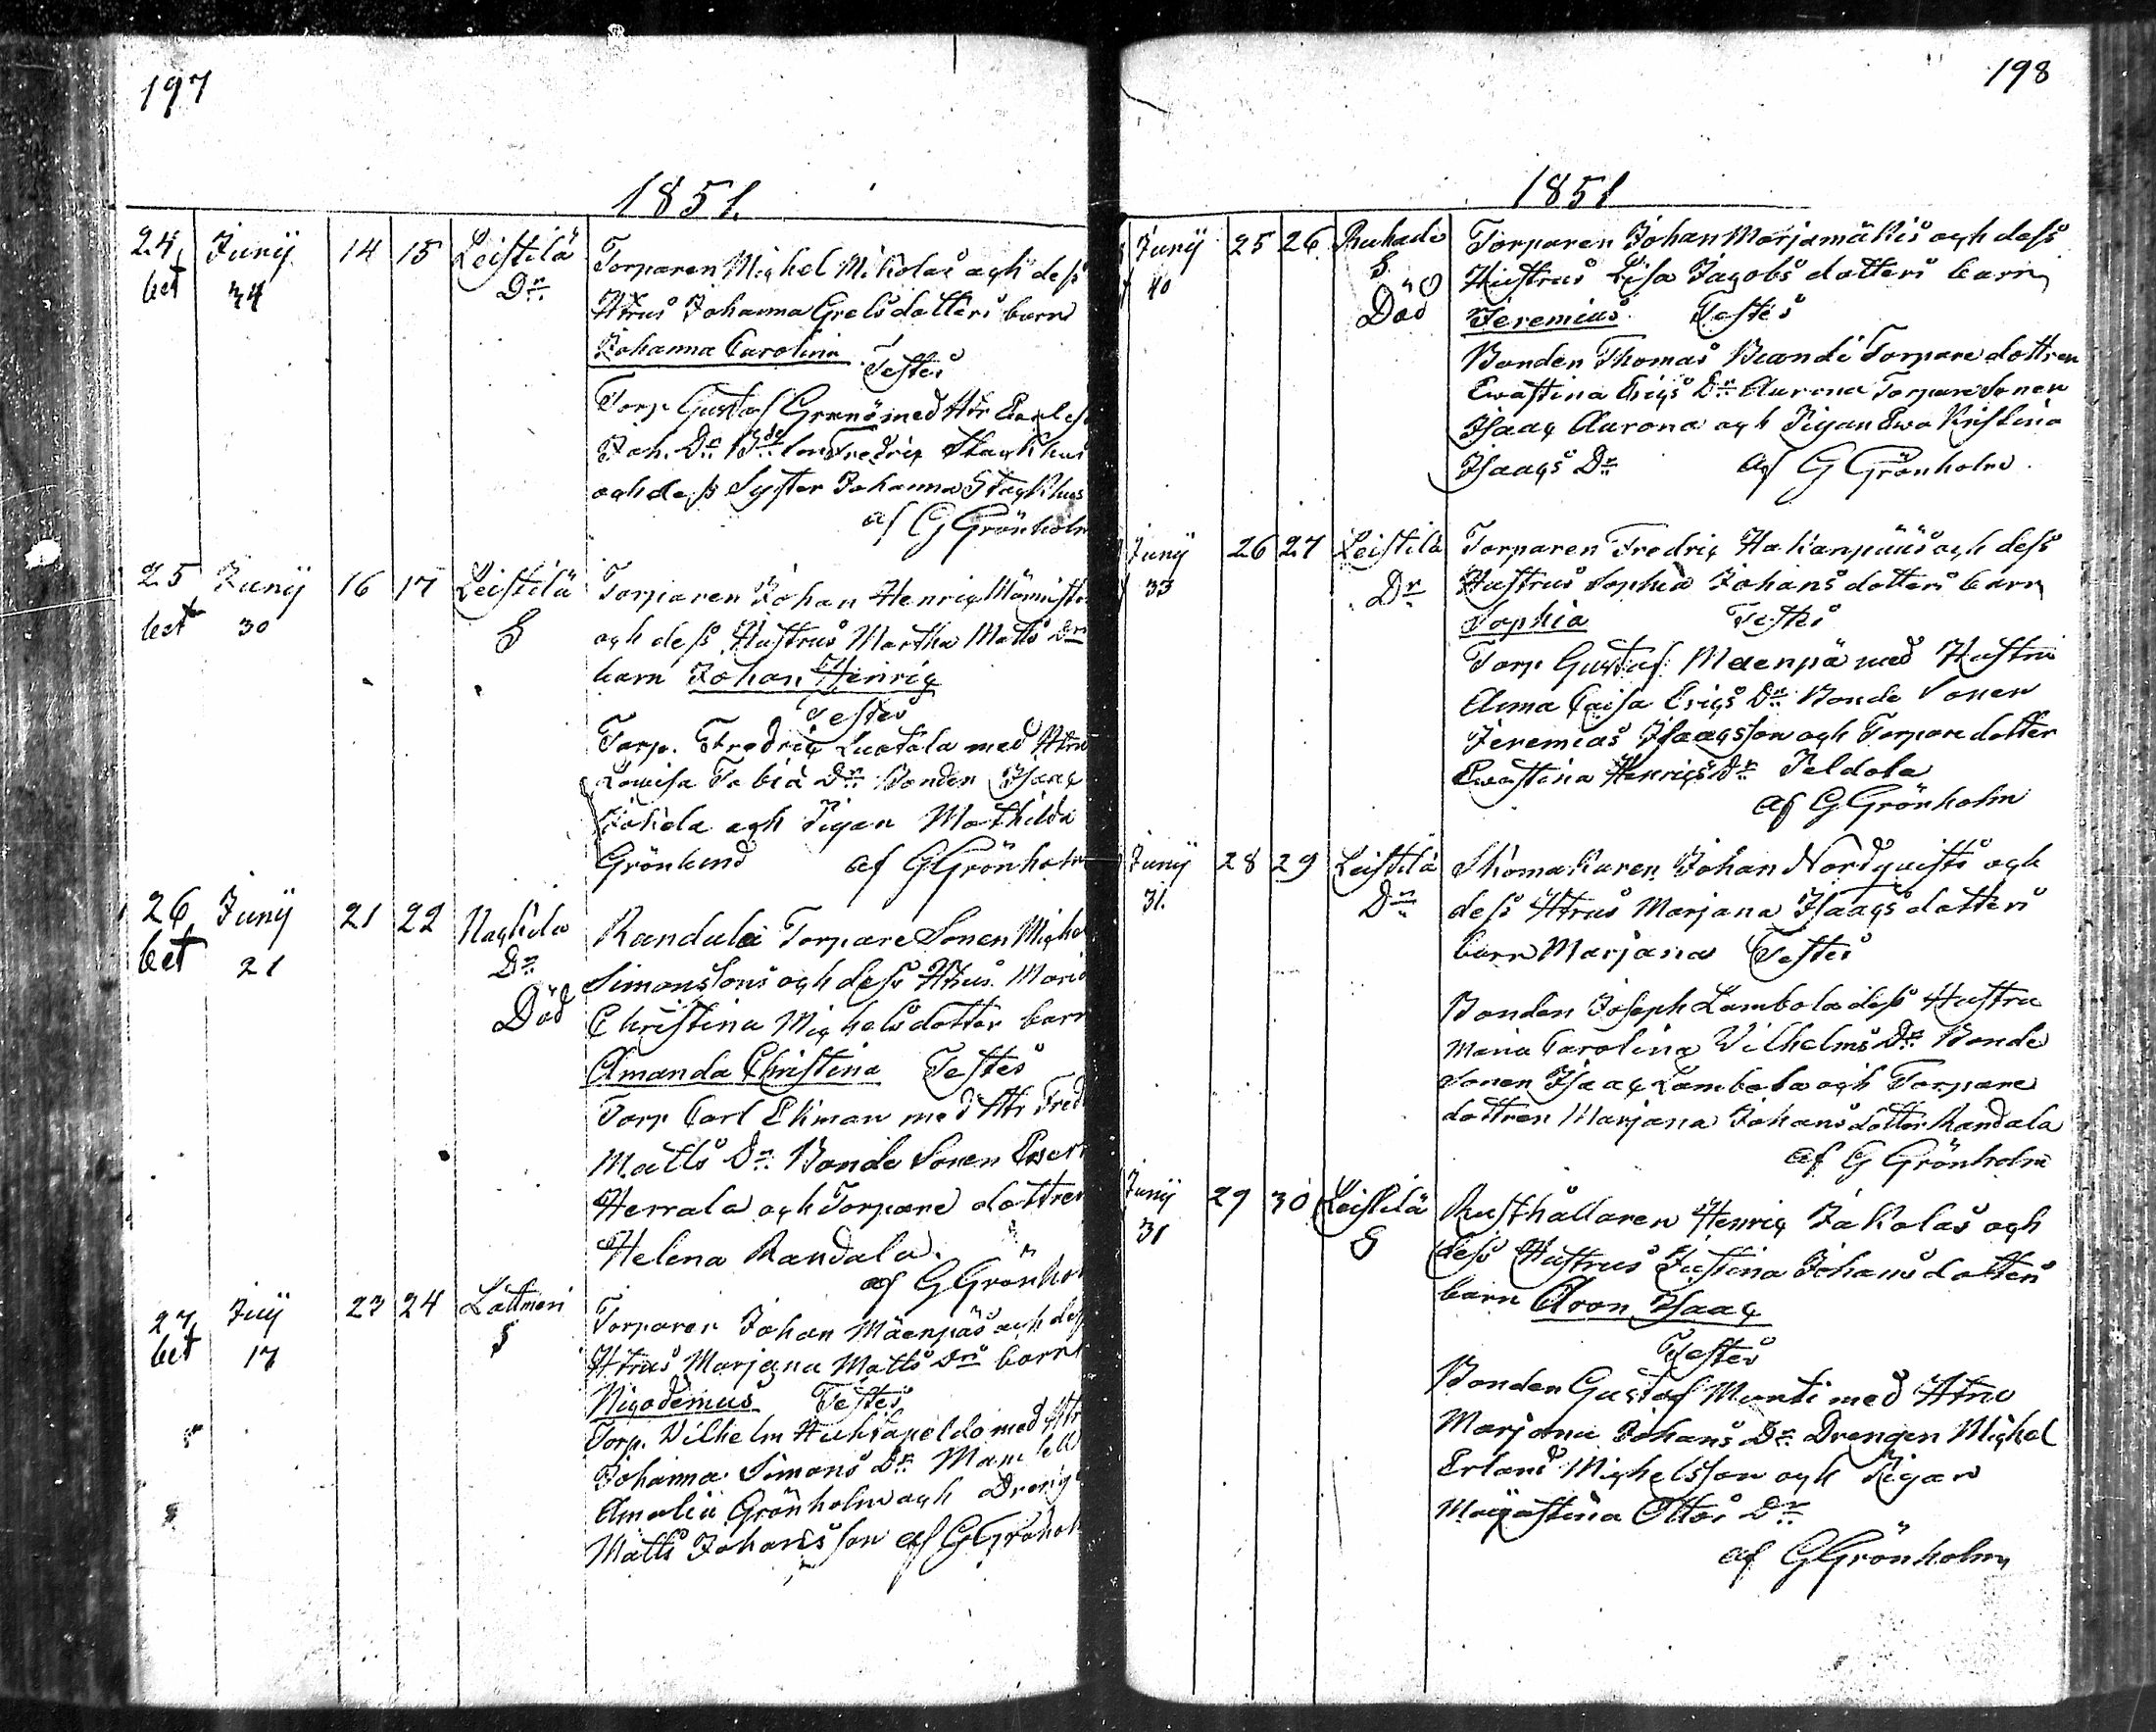 197
1851.
24. Junij 14 15 Leistilä Torparen Michel Mikolas och dess
bet 34 Dr. Htrus Johanna Grelsdotters barn
Johanna Carolina
Testes
Torp. Gustaf Grenö med Htr
Joh. Dr. Bde Son Fredric Stackhus
och dess Syster Johanna Stackhus
af G Grönholm
25 Junij 16 17 Leistilä Torparen Johan Henric
bet 30 S och dess Hustrus Martha Matts Drs
barn Johan Henric
Testes
Torp. Fredric med Htru
Lovisa Tobiæ Dr. Bonden Isaac
och Pigan Mathilda
Grönlund af G Grönholm
26 Junij 21 22 Nackila Randala Torpare Sonen Michel
bet 21 Dr. Simonssons och dess Htrus Maria
Död Christina Michelsdotter barn
Amanda Christina Testes
Torp Carl Ekman med Htr Fred
Matts Dr. Bonde Sonen
Herrala och Torpare dottren
Helena Randala.
af G Grönholm
27 Juij 23 24 Lattmeri Torparen Johan Mäenpäs och dess
bet 17 S Htrus Marjana Matts Drs barn
Nicodemus Testes
Torp. Vilhelm med Htr
Johanna Simons Dr. Mamsell
Amalia Grönholm och Dreng
Matts Johansson af G Grönholm
198
1851
Junij 25 26 Ruhade Torparen Johan Marjamäkis och dess
40 S Hustrus Lisa Jacobs dotters barn
Död Jeremias Testes
Bonden Thomas Torpare dottren
Ewastina Erics Dr. Aarona Torpare Sonen
Isaac Aarona och Pigan Ewa Kristina
Isaacs Dr. af G Grönholm.
Junij 26 27 Leistilä Torparen Fredric Hakanpääs och dess
33 Dr. Hustrus Sophia Johans dotters barn
Sophia Testes
Torp. Gustaf Mäenpä med Hustru
Anna Caisa Erics Dr. Bonde Sonen
Jeremias Isaacsson och Torpare dotter
Ewastina Henrics Dr. Peldola
af G Grönholm
Junij 28 29 Leistilä Skomakaren Johan Nordquists och
31. Dr. dess Htrus Marjana Isaacs dotters
barn Marjana Testes
Bonden Joseph Lambola dess Hustru
Maria Carolina Vilhelms Dr. Bonde
Sonen Isaac Lambola och Torpare
dottren Marjana Johans dotter Randala
af G Grönholm
Junij 29 30 Leistilä Rusthållaren Henric Jakolas och
31 S dess Hustrus Justina Johans dotters
barn Aron Isaac
Testes
Bonden Gustaf Munti med Htru
Marjana Johans Dr. Drengen Michel
Erland Michelsson och Pigan
Majastina Ottos Dr.
af G Grönholm